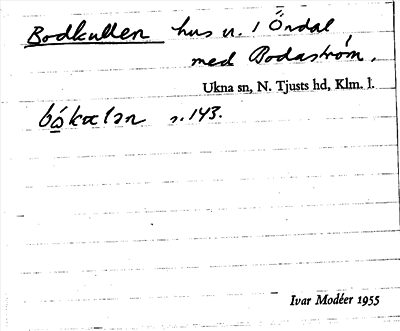 Bodkullen hus u. 1 Öndal
med Bodaström.
Ukna sn, N. Tjusts hd, Klm. l.
bókalan s. 143.
Ivar Modéer 1955